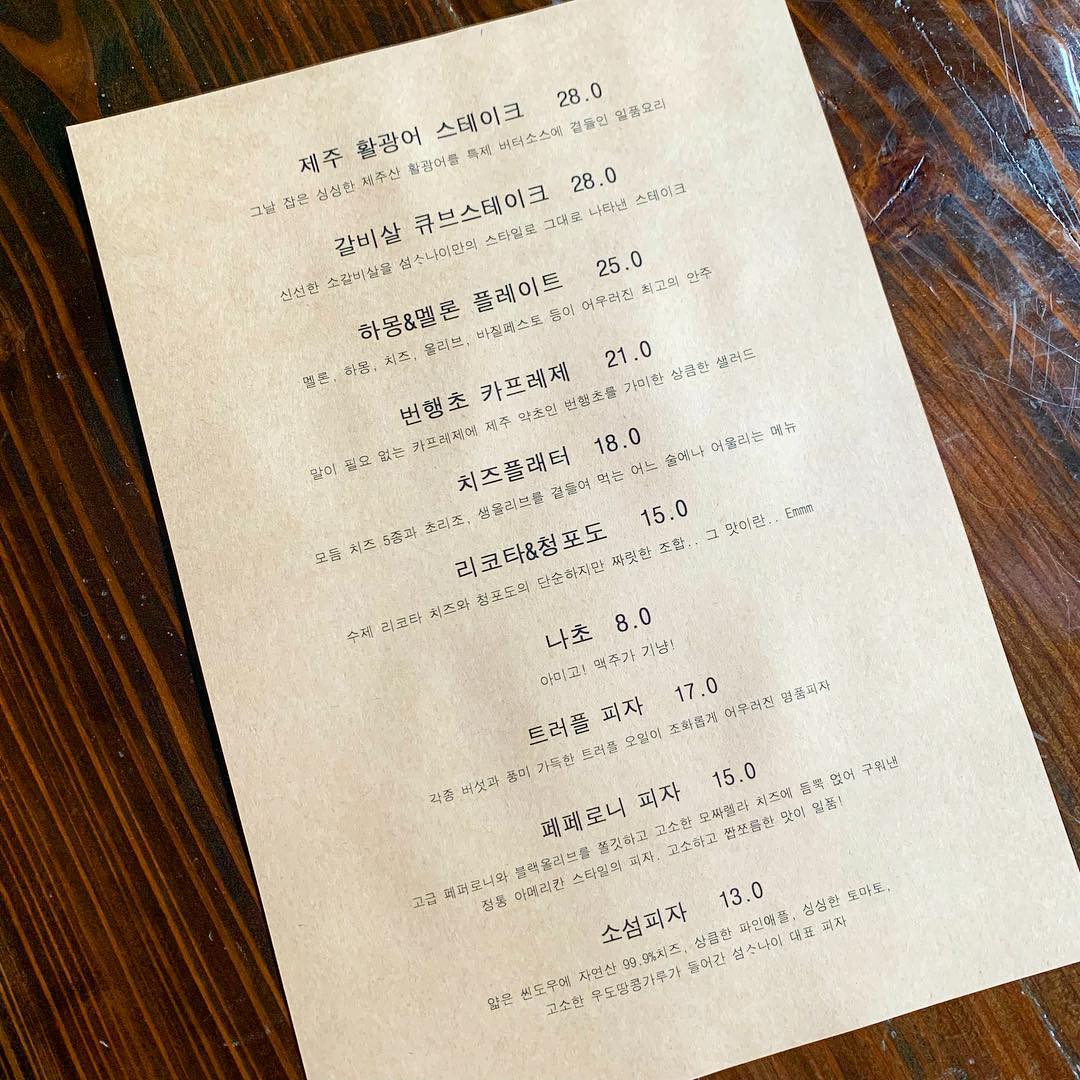 제주 활광어 스테이크 28.0
그날 잡은 싱싱한 제주산 활광어를 특제 버터소스에 곁들인 일품요리
갈비살 큐브스테이크 28.0
신선한 소갈비살을 섬ㅅ나이만의 스타일로 그대로 나타낸 스테이크
하몽&멜론 플레이트 25.0
멜론, 하몽, 치즈, 올리브, 바질페스토 등이 어우러진 최고의 안주
번행초 카프레제 21.0
말이 필요 없는 카프레제에 제주 약초인 번행초를 가미한 상큼한 샐러드
치즈플래터 18.0
모듬 치즈 5종과 초리조, 생올리브를 곁들여 먹는 어느 술에나 어울리는 메뉴
리코타&청포도 15.0
수제 리코타 치즈와 청포도의 단순하지만 짜릿한 조합.. 그 맛이란.. Emmm
나초 8.0
아미고! 맥주가 기냥!
트러플 피자 17.0
각종 버섯과 풍미 가득한 트러플 오일이 조화롭게 어우러진 명품피자
페페로니 피자 15.0
고급 페퍼로니와 블랙올리브를 쫄깃하고 고소한 모짜렐라 치즈에 듬뿍 얹어 구워낸
정통 아메리칸 스타일의 피자. 고소하고 짭쪼름한 맛이 일품!
소섬피자 13.0
얇은 씬도우에 자연산 99.9%치즈, 상큼한 파인애플, 싱싱한 토마토,
고소한 우도땅콩가루가 들어간 섬ㅅ나이 대표 피자